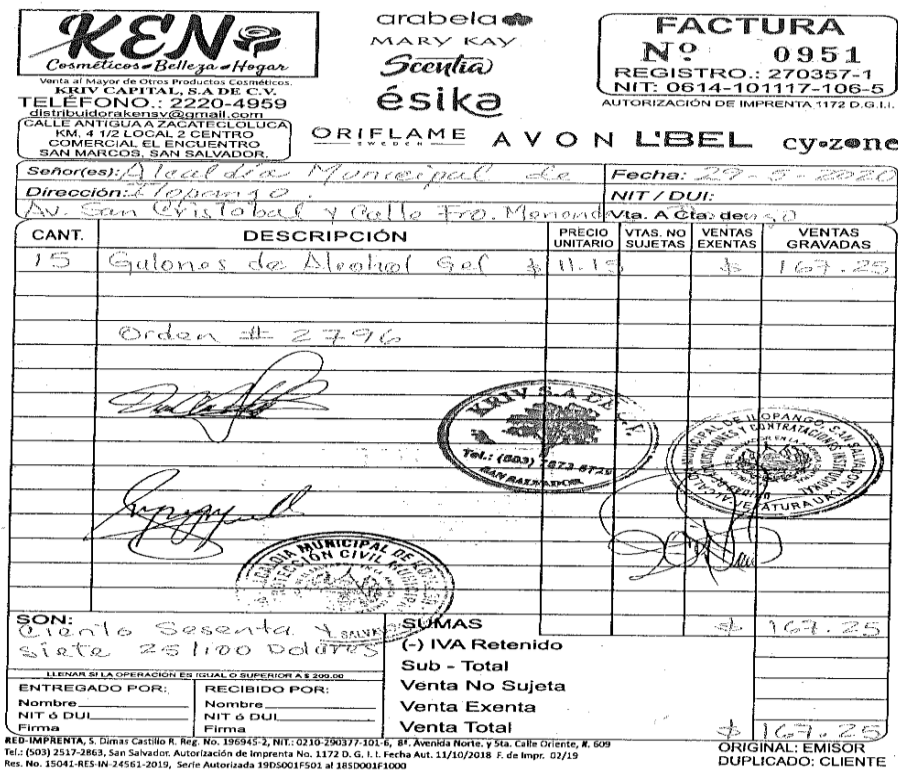 KEN
Cosméticos - Belleza - Hogar
Venta al Mayor de Otros Productos Cosméticos.
KRIV CAPITAL, S.A DE C.V.
TELÉFONO.: 2220-4959
distribuidorakensv@gmail.com
CALLE ANTIGUA A ZACATECLOLUCA
KM, 4 1/2 LOCAL 2 CENTRO
COMERCIAL EL ENCUENTRO
SAN MARCOS, SAN SALVADOR.
arabela
MARY KAY
Scentia
ésika
ORIFLAME
SWEDEN
AVON L'BEL cy•zone
FACTURA
Nº 0951
REGISTRO.: 270357-1
NIT: 0614-101117-106-5
AUTORIZACIÓN DE IMPRENTA 1172 D.G.I.I.
Señor(es): Alcaldía Municipal de Fecha: 29-5-2020
Dirección: Ilopango. NIT / DUI:
Av. San Cristobal y Calle Fro. Menend Vta. A Cta. de:
CANT. DESCRIPCIÓN PRECIO UNITARIO VTAS. NO SUJETAS VENTAS EXENTAS VENTAS GRAVADAS
15 Galones de Alcohol Gel $ 11.15 $ 167.25
Orden # 2796
KRIV S.A DE C.V.
Tel.: (503) 7873-6729
SAN SALVADOR
ALCALDIA MUNICIPAL DE ILOPANGO, SAN SALVADOR
JEFATURA UACI
ALCALDIA MUNICIPAL DE
PROTECCIÓN CIVIL MUNICIPAL
SON: SUMAS $ 167.25
Ciento Sesenta y
siete 25/100 Dolares
(-) IVA Retenido
Sub - Total
Venta No Sujeta
Venta Exenta
Venta Total $ 167.25
LLENAR SI LA OPERACIÓN ES IGUAL O SUPERIOR A $ 200.00
ENTREGADO POR: RECIBIDO POR:
Nombre Nombre
NIT ó DUI NIT ó DUI
Firma Firma
RED-IMPRENTA, S. Dimas Castillo R. Reg. No. 196945-2, NIT.: 0210-290377-101-6, 8ª. Avenida Norte. y 5ta. Calle Oriente, #. 609
Tel.: (503) 2517-2863, San Salvador. Autorización de Imprenta No. 1172 D. G. I. I. Fecha Aut. 11/10/2018 F. de Impr. 02/19
Res. No. 15041-RES-IN-24561-2019, Serie Autorizada 19DS001F501 al 18SD001F1000
ORIGINAL: EMISOR
DUPLICADO: CLIENTE